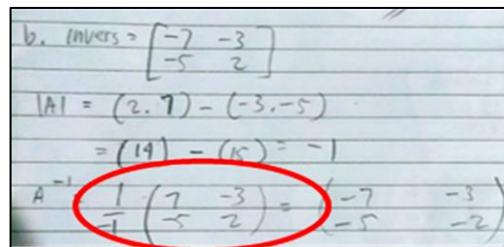 b. Invers = [-7 -3
-5 2]
|A| = (2.7) - (-3.-5)
= (14) - (15) = -1
A⁻¹ = 1/-1 (7 -3
-5 2) = (-7 -3
-5 -2)